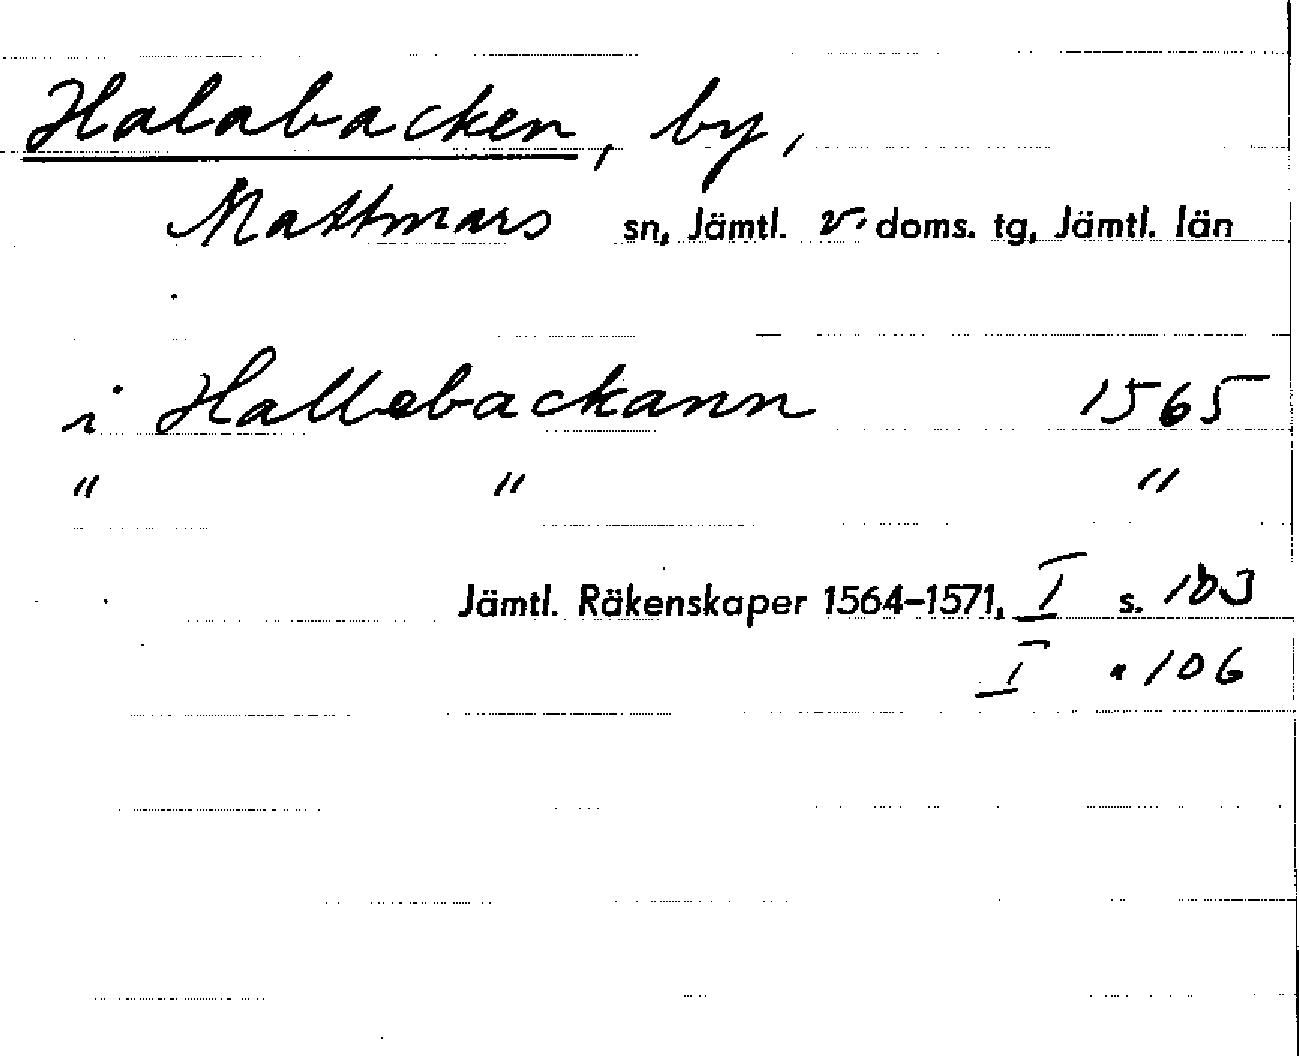 Halabacken, by,
Mattmars sn, Jämtl. v. doms. tg, Jämtl. län
i Hallebackann 1565
" " "
Jämtl. Räkenskaper 1564-1571, I s. 103
I " 106